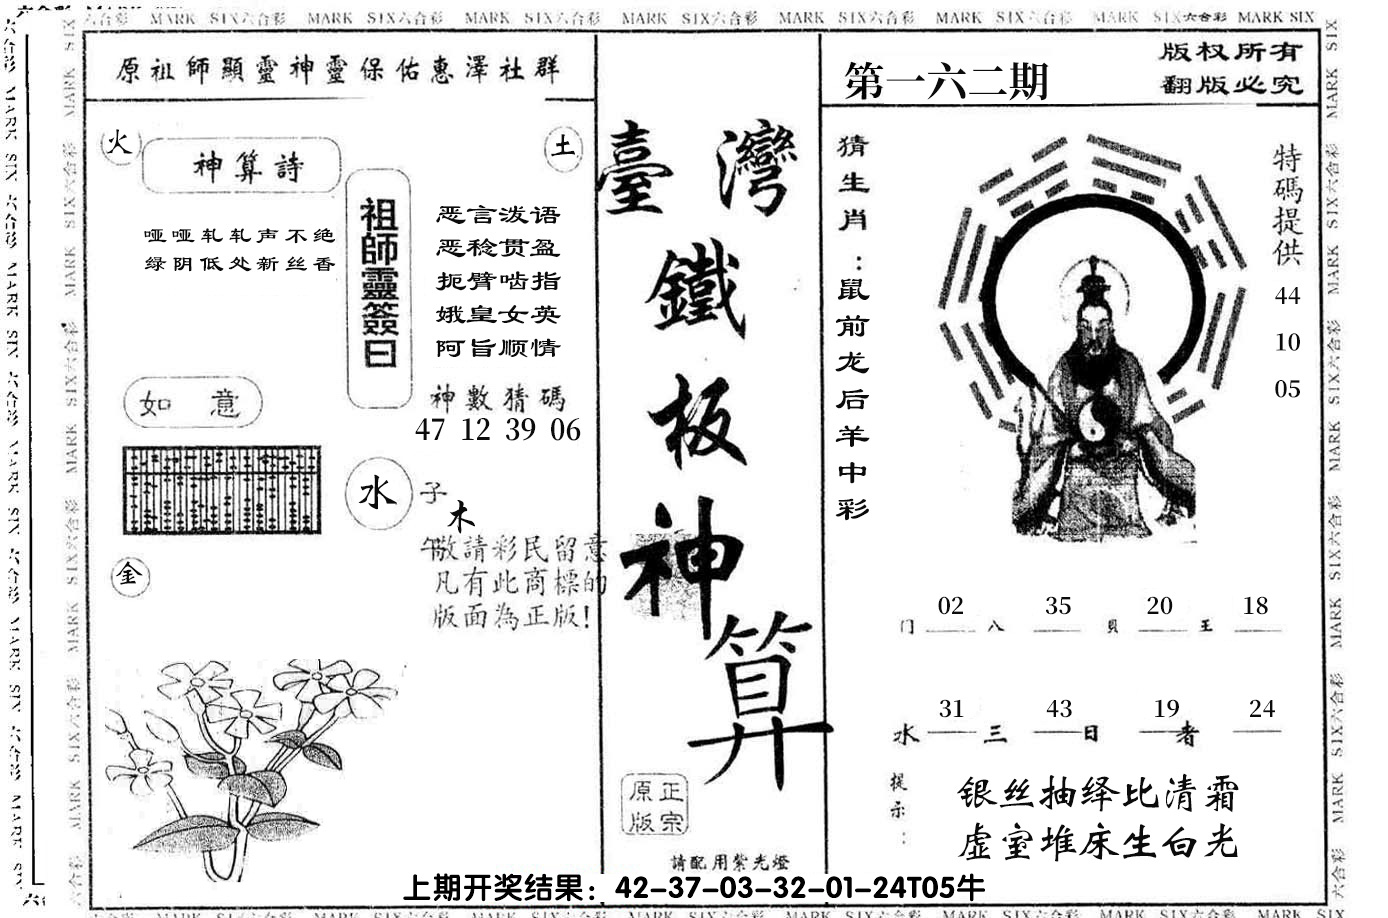 MARK SIX六合彩 MARK SIX六合彩 MARK SIX六合彩 MARK SIX六合彩 MARK SIX六合彩 MARK SIX六合彩 MARK SIX六合彩 MARK SIX
原祖師顯靈神靈保佑惠澤社群
火
神算詩
土
哑哑轧轧声不绝
绿阴低处新丝香
祖師靈簽曰
恶言泼语
恶稔贯盈
扼臂啮指
娥皇女英
阿旨顺情
神數猜碼
47 12 39 06
如意
水
子
木
午
金
敬請彩民留意
凡有此商標的
版面為正版!
臺灣
鐵
板
神
算
原正
版宗
請配用紫光燈
第一六二期
版权所有
翻版必究
猜生肖:鼠前龙后羊中彩
特碼提供
44
10
05
02 35 20 18
门 八 貝 王
31 43 19 24
水 三 日 者
提示:
银丝抽绎比清霜
虚室堆床生白光
上期开奖结果：42-37-03-32-01-24T05牛